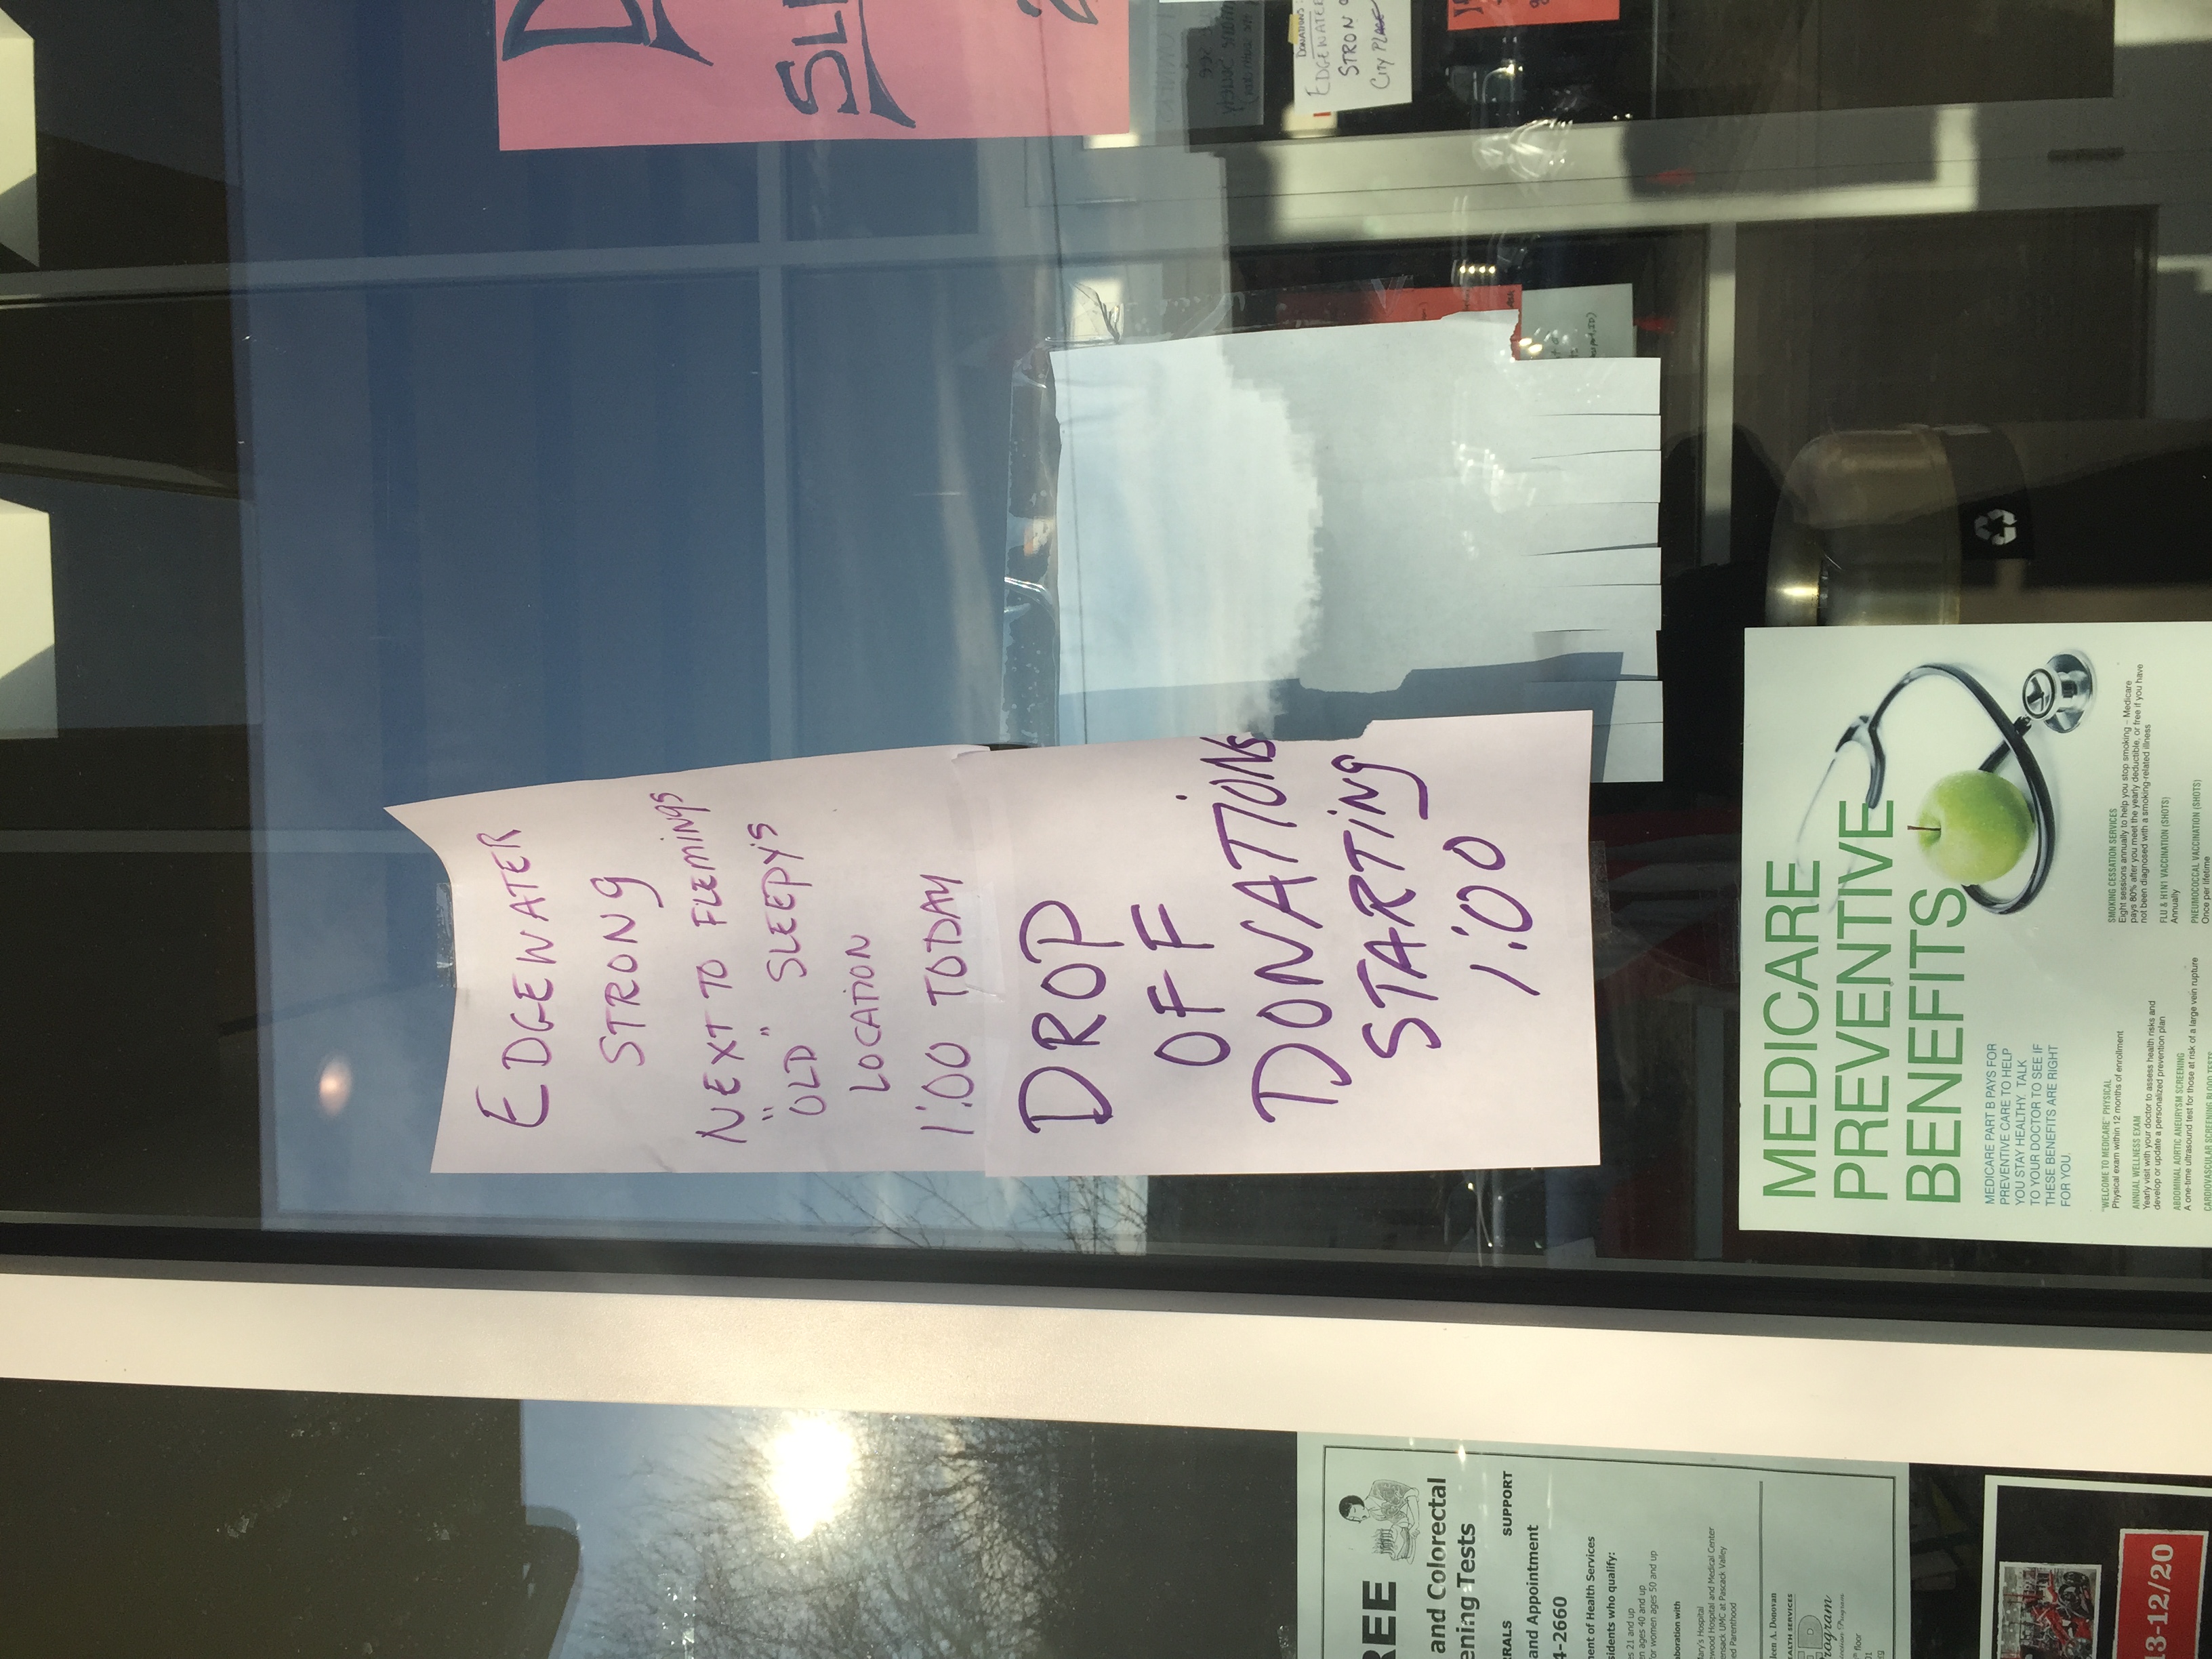 EDGEWATER
STRONG
NEXT TO FLEMINGS
"OLD" SLEEPY'S
LOCATION
1:00 TODAY
DROP
OFF
DONATIONS
STARTING
1:00
DONATIONS:
EDGEWATER
STRON
CITY PLACE
MEDICARE
PREVENTIVE
BENEFITS
MEDICARE PART B PAYS FOR
PREVENTIVE CARE TO HELP
YOU STAY HEALTHY. TALK
TO YOUR DOCTOR TO SEE IF
THESE BENEFITS ARE RIGHT
FOR YOU.
"WELCOME TO MEDICARE" PHYSICAL
Physical exam within 12 months of enrollment
ANNUAL WELLNESS EXAM
Yearly visit with your doctor to assess health risks and
develop or update a personalized prevention plan
ABDOMINAL AORTIC ANEURYSM SCREENING
A one-time ultrasound test for those at risk of a large vein rupture
CARDIOVASCULAR SCREENING BLOOD TESTS
SMOKING CESSATION SERVICES
Eight sessions annually to help you stop smoking – Medicare
pays 80% after you meet the yearly deductible, or free if you have
not been diagnosed with a smoking-related illness
FLU & H1N1 VACCINATION (SHOTS)
Annually
PNEUMOCOCCAL VACCINATION (SHOTS)
Once per lifetime
REE
and Colorectal
ening Tests
RRALS SUPPORT
and Appointment
4-2660
ment of Health Services
sidents who qualify:
es 21 and up
en ages 40 and up
for women ages 50 and up
aboration with
ary's Hospital
nwood Hospital and Medical Center
ensack UMC at Pascack Valley
ed Parenthood
leen A. Donovan
EALTH SERVICES
rogram
floor
13-12/20